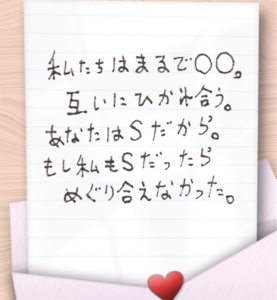 私たちはまるで〇〇。
互いにひかれ合う。
あなたはSだから。
もし私もSだったら
めぐり合えなかった。